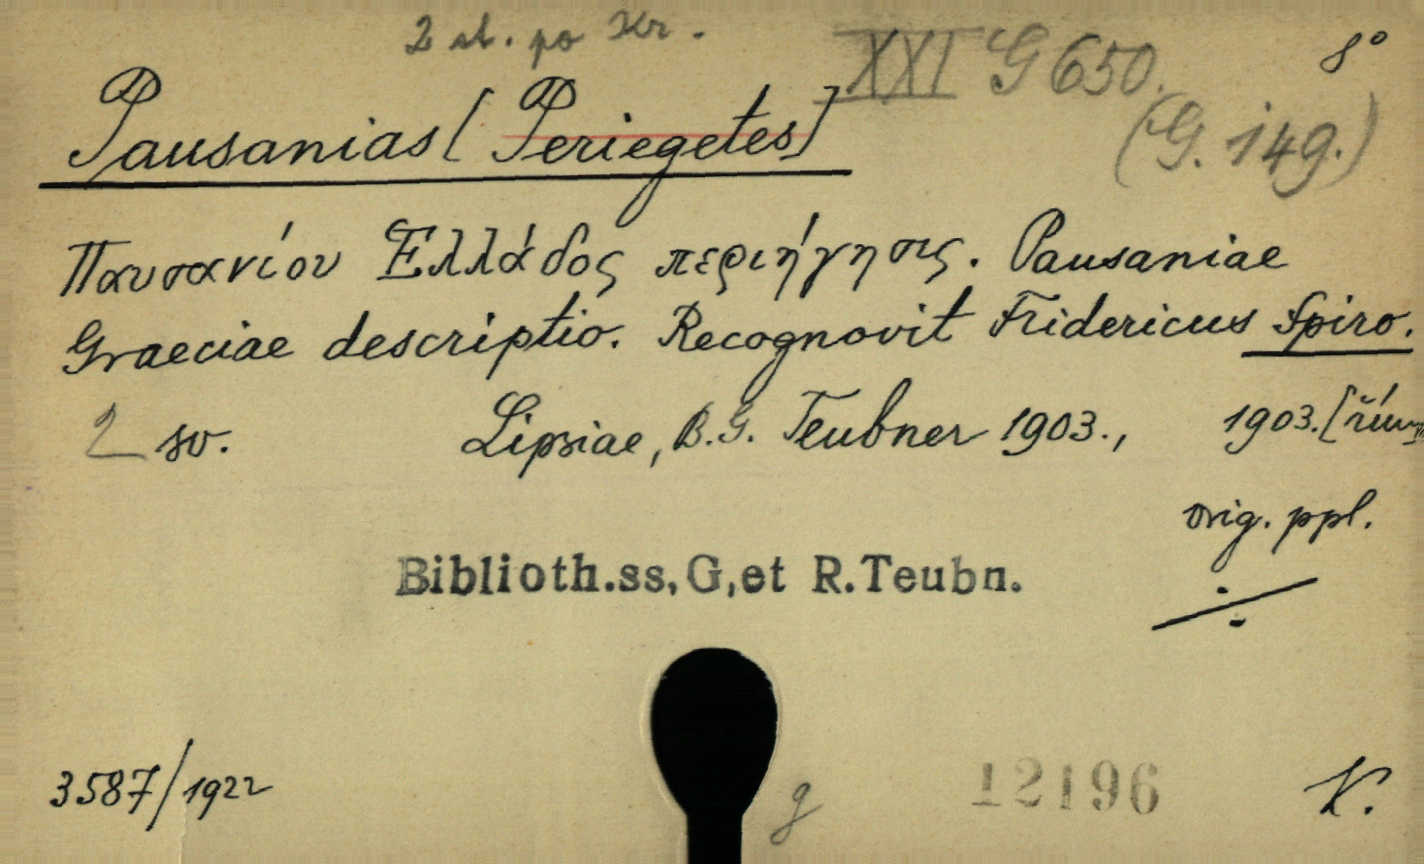 2 st. po Kr.
XXI G 650.
8°
Pausanias [Periegetes]
(G. 149.)
Παυσανίου Ἑλλάδος περιήγησις. Pausaniae
Graeciae descriptio. Recognovit Fridericus Spiro.
2 sv. Lipsiae, B. G. Teubner 1903., 1903. [řím
orig. ppl.
Biblioth.ss,G,et R.Teubn.
3587/1922
g
12196
K.